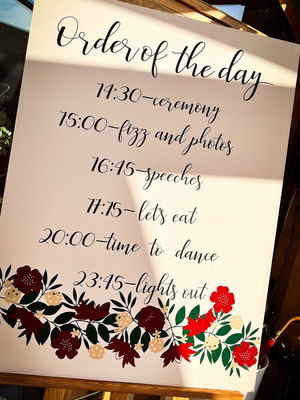 Order of the day
14:30-ceremony
15:00-fizz and photos
16:45-speeches
17:15-let's eat
20:00-time to dance
23:45-lights out